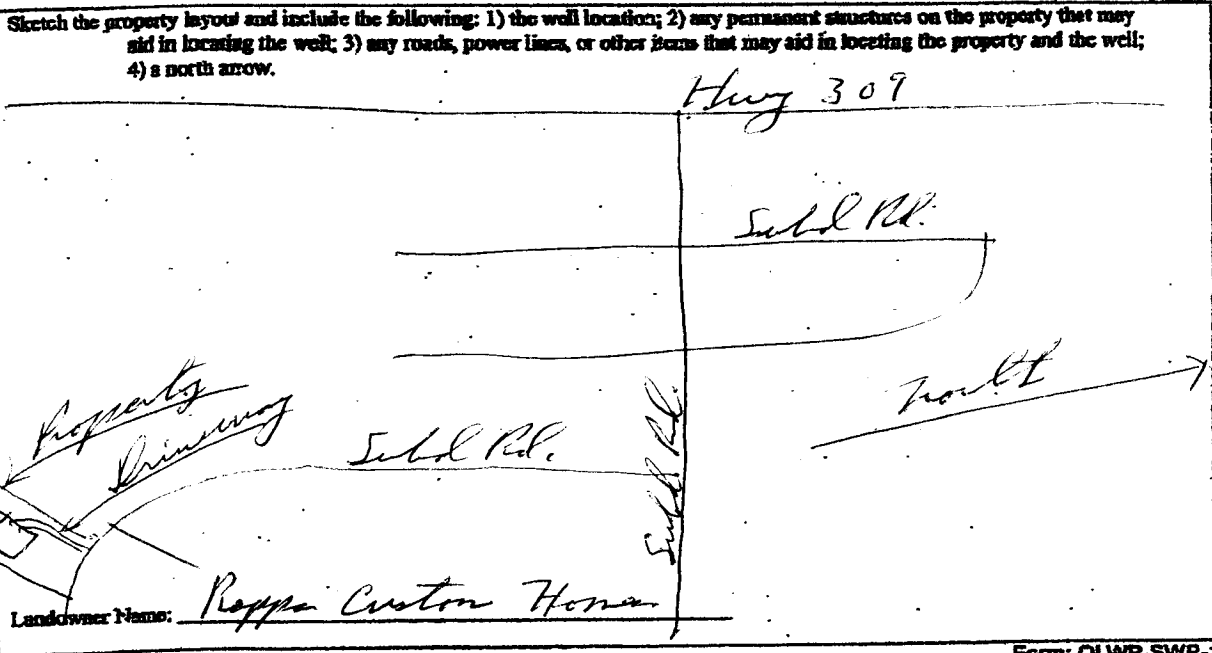 Sketch the property layout and include the following: 1) the well location; 2) any permanent structures on the property that may
aid in locating the well; 3) any roads, power lines, or other items that may aid in locating the property and the well;
4) a north arrow.
Hwy 309
Subd Rd.
North
Property
Driveway
Subd Rd.
Subd Rd.
Landowner Name: Custom Homes
Form: OLWR SWP-